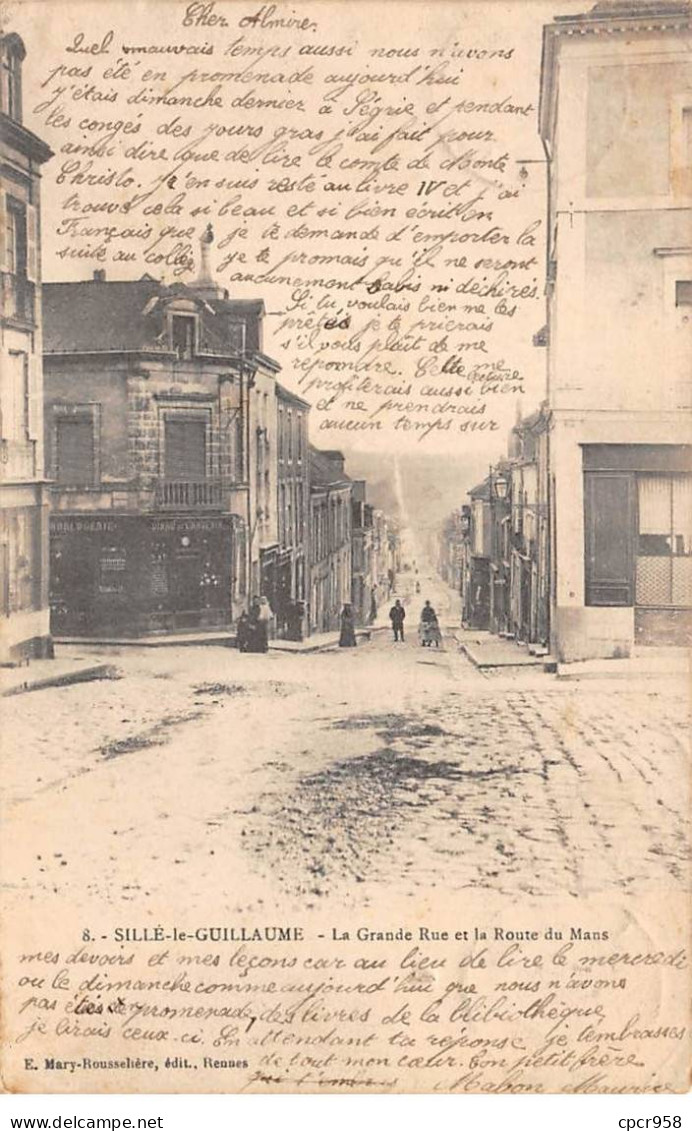 Cher Almire.
Quel mauvais temps aussi nous n'avons
pas été en promenade aujourd'hui
j'étais dimanche dernier à Ségrie et pendant
les congés des jours gras j'ai fait pour
ainsi dire que de lire le comte de Monte
Christo. J'en suis resté au livre IV et j'ai
trouvé cela si beau et si bien écrit en
Français que je te demande d'emporter la
suite au collèg je te promais qu'il ne seront
aucunement salis ni déchirés.
Si tu voulais bien me les
prêtés je te prierais
s'il vous plait de me
repondre. Cette
lecture me
profiterais aussi bien
et ne prendrais
aucun temps sur
AUBERGERIE
8. - SILLÉ-le-GUILLAUME - La Grande Rue et la Route du Mans
mes devoirs et mes leçons car au lieu de lire le mercredi
ou le dimanche comme aujourd'hui que nous n'avons
pas étés de promenade, des livres de la blibiothèque
je lirais ceux-ci. En attendant ta réponse je t'embrasses
E. Mary-Rousselière, édit., Rennes
de tout mon cœur. Ton petit frère
Mabon Maurice
cpcr958